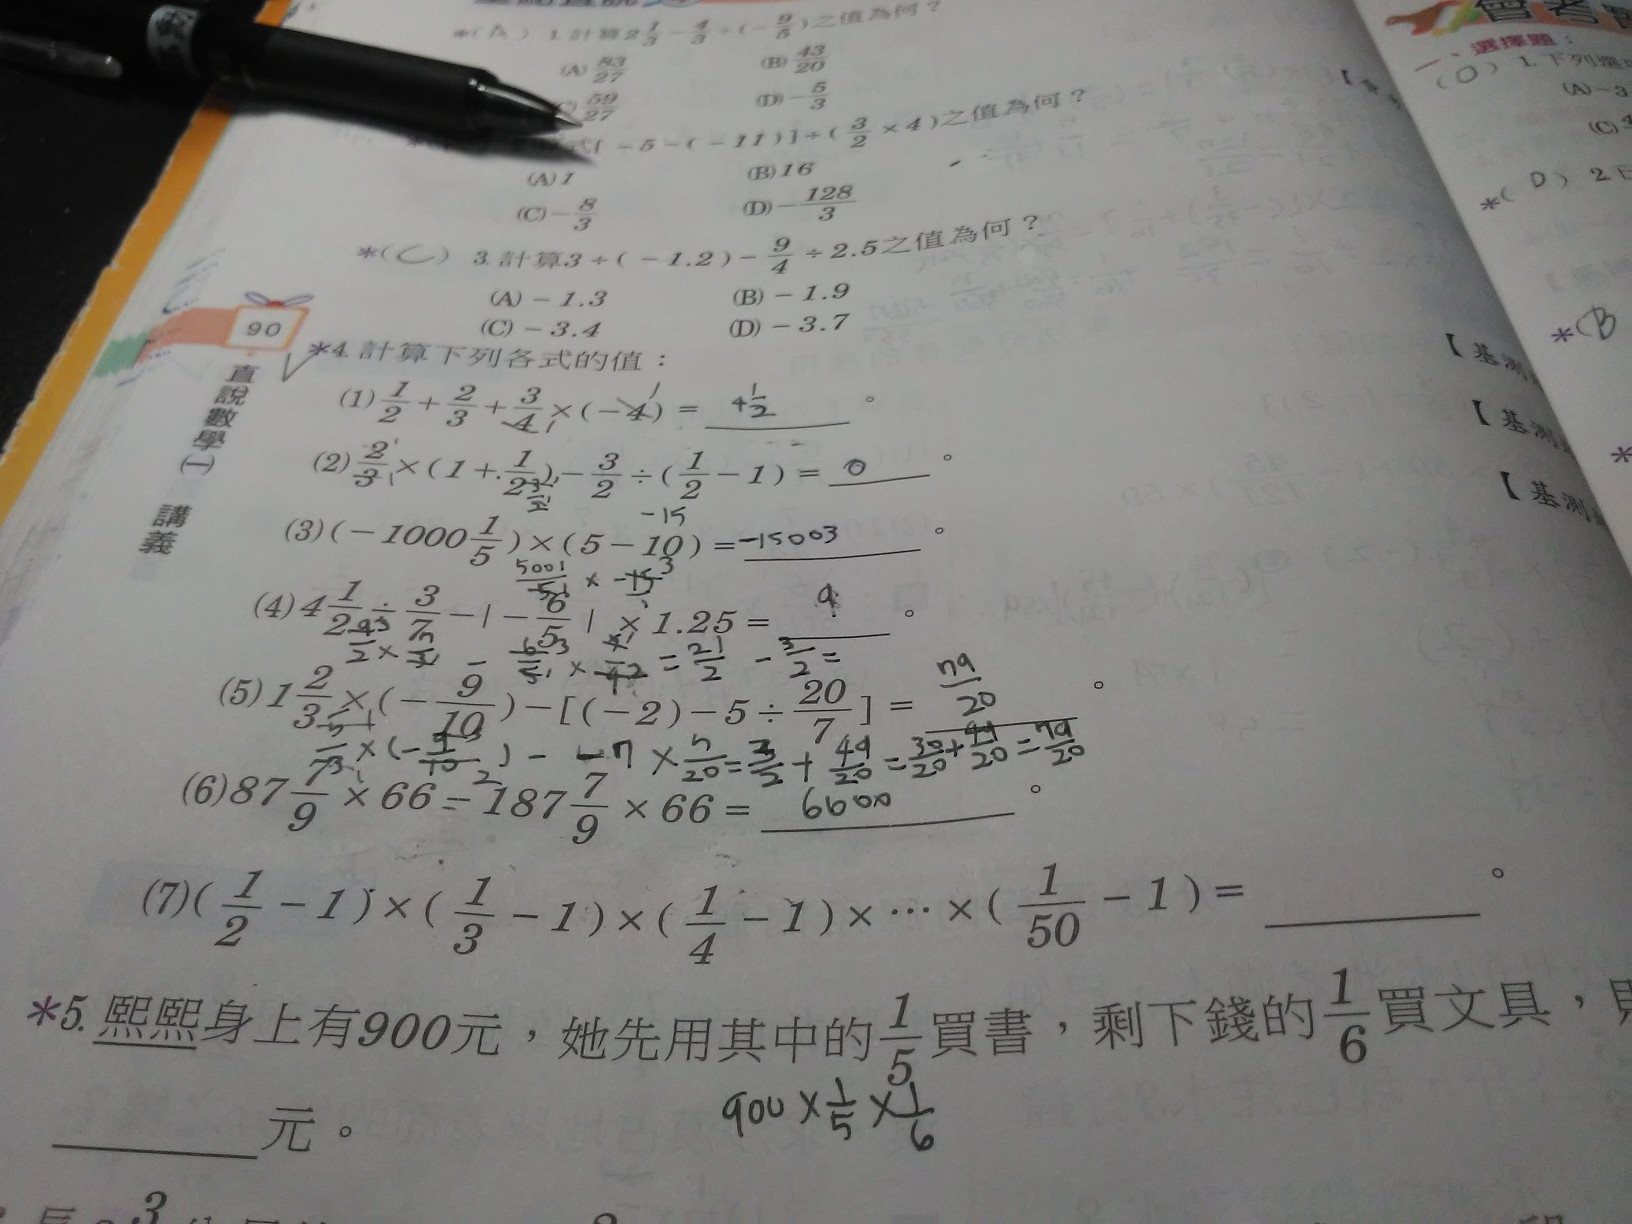 *(A) 1. 計算2 1/3 − 4/3 ÷ (− 9/5)之值為何？
(A) 83/27 (B) 43/20
59/27 (D) − 5/3
[ −5 − ( −11)] ÷ ( 3/2 × 4)之值為何？
(A) 1 (B) 16
(C) − 8/3 (D) − 128/3
*(C) 3. 計算3 ÷ ( −1.2) − 9/4 ÷ 2.5之值為何？
(A) − 1.3 (B) − 1.9
(C) − 3.4 (D) − 3.7
90
直說數學(一) 講義
*4. 計算下列各式的值：
(1) 1/2 + 2/3 + 3/4 × (−4) = 4 1/2 。
(2) 2/3 × (1 + 1/2) − 3/2 ÷ ( 1/2 − 1) = 0 。
−15
(3)(−1000 1/5) × (5 − 10) = −15003 。
5001/5 × −15 3
(4) 4 1/2 ÷ 3/7 − | − 6/5 | × 1.25 = 9 。
= 21/2 − 3/2 =
(5) 1 2/3 × (− 9/10) − [(−2) − 5 ÷ 20/7] = 79/20 。
× (− 9/10) − −7 × 7/20 = 3/2 + 49/20 = 30/20 + 49/20 = 79/20
(6) 87 7/9 × 66 − 187 7/9 × 66 = 6600 。
(7)( 1/2 − 1) × ( 1/3 − 1) × ( 1/4 − 1) × ⋯ × ( 1/50 − 1) = 。
*5. 熙熙身上有900元，她先用其中的 1/5 買書，剩下錢的 1/6 買文具，則
900 × 1/5 × 1/6
元。
選擇題：
(D) 1. 下列
(A) −3
(C)
*(D) 2.
*(B
【基測
【基測
【基測